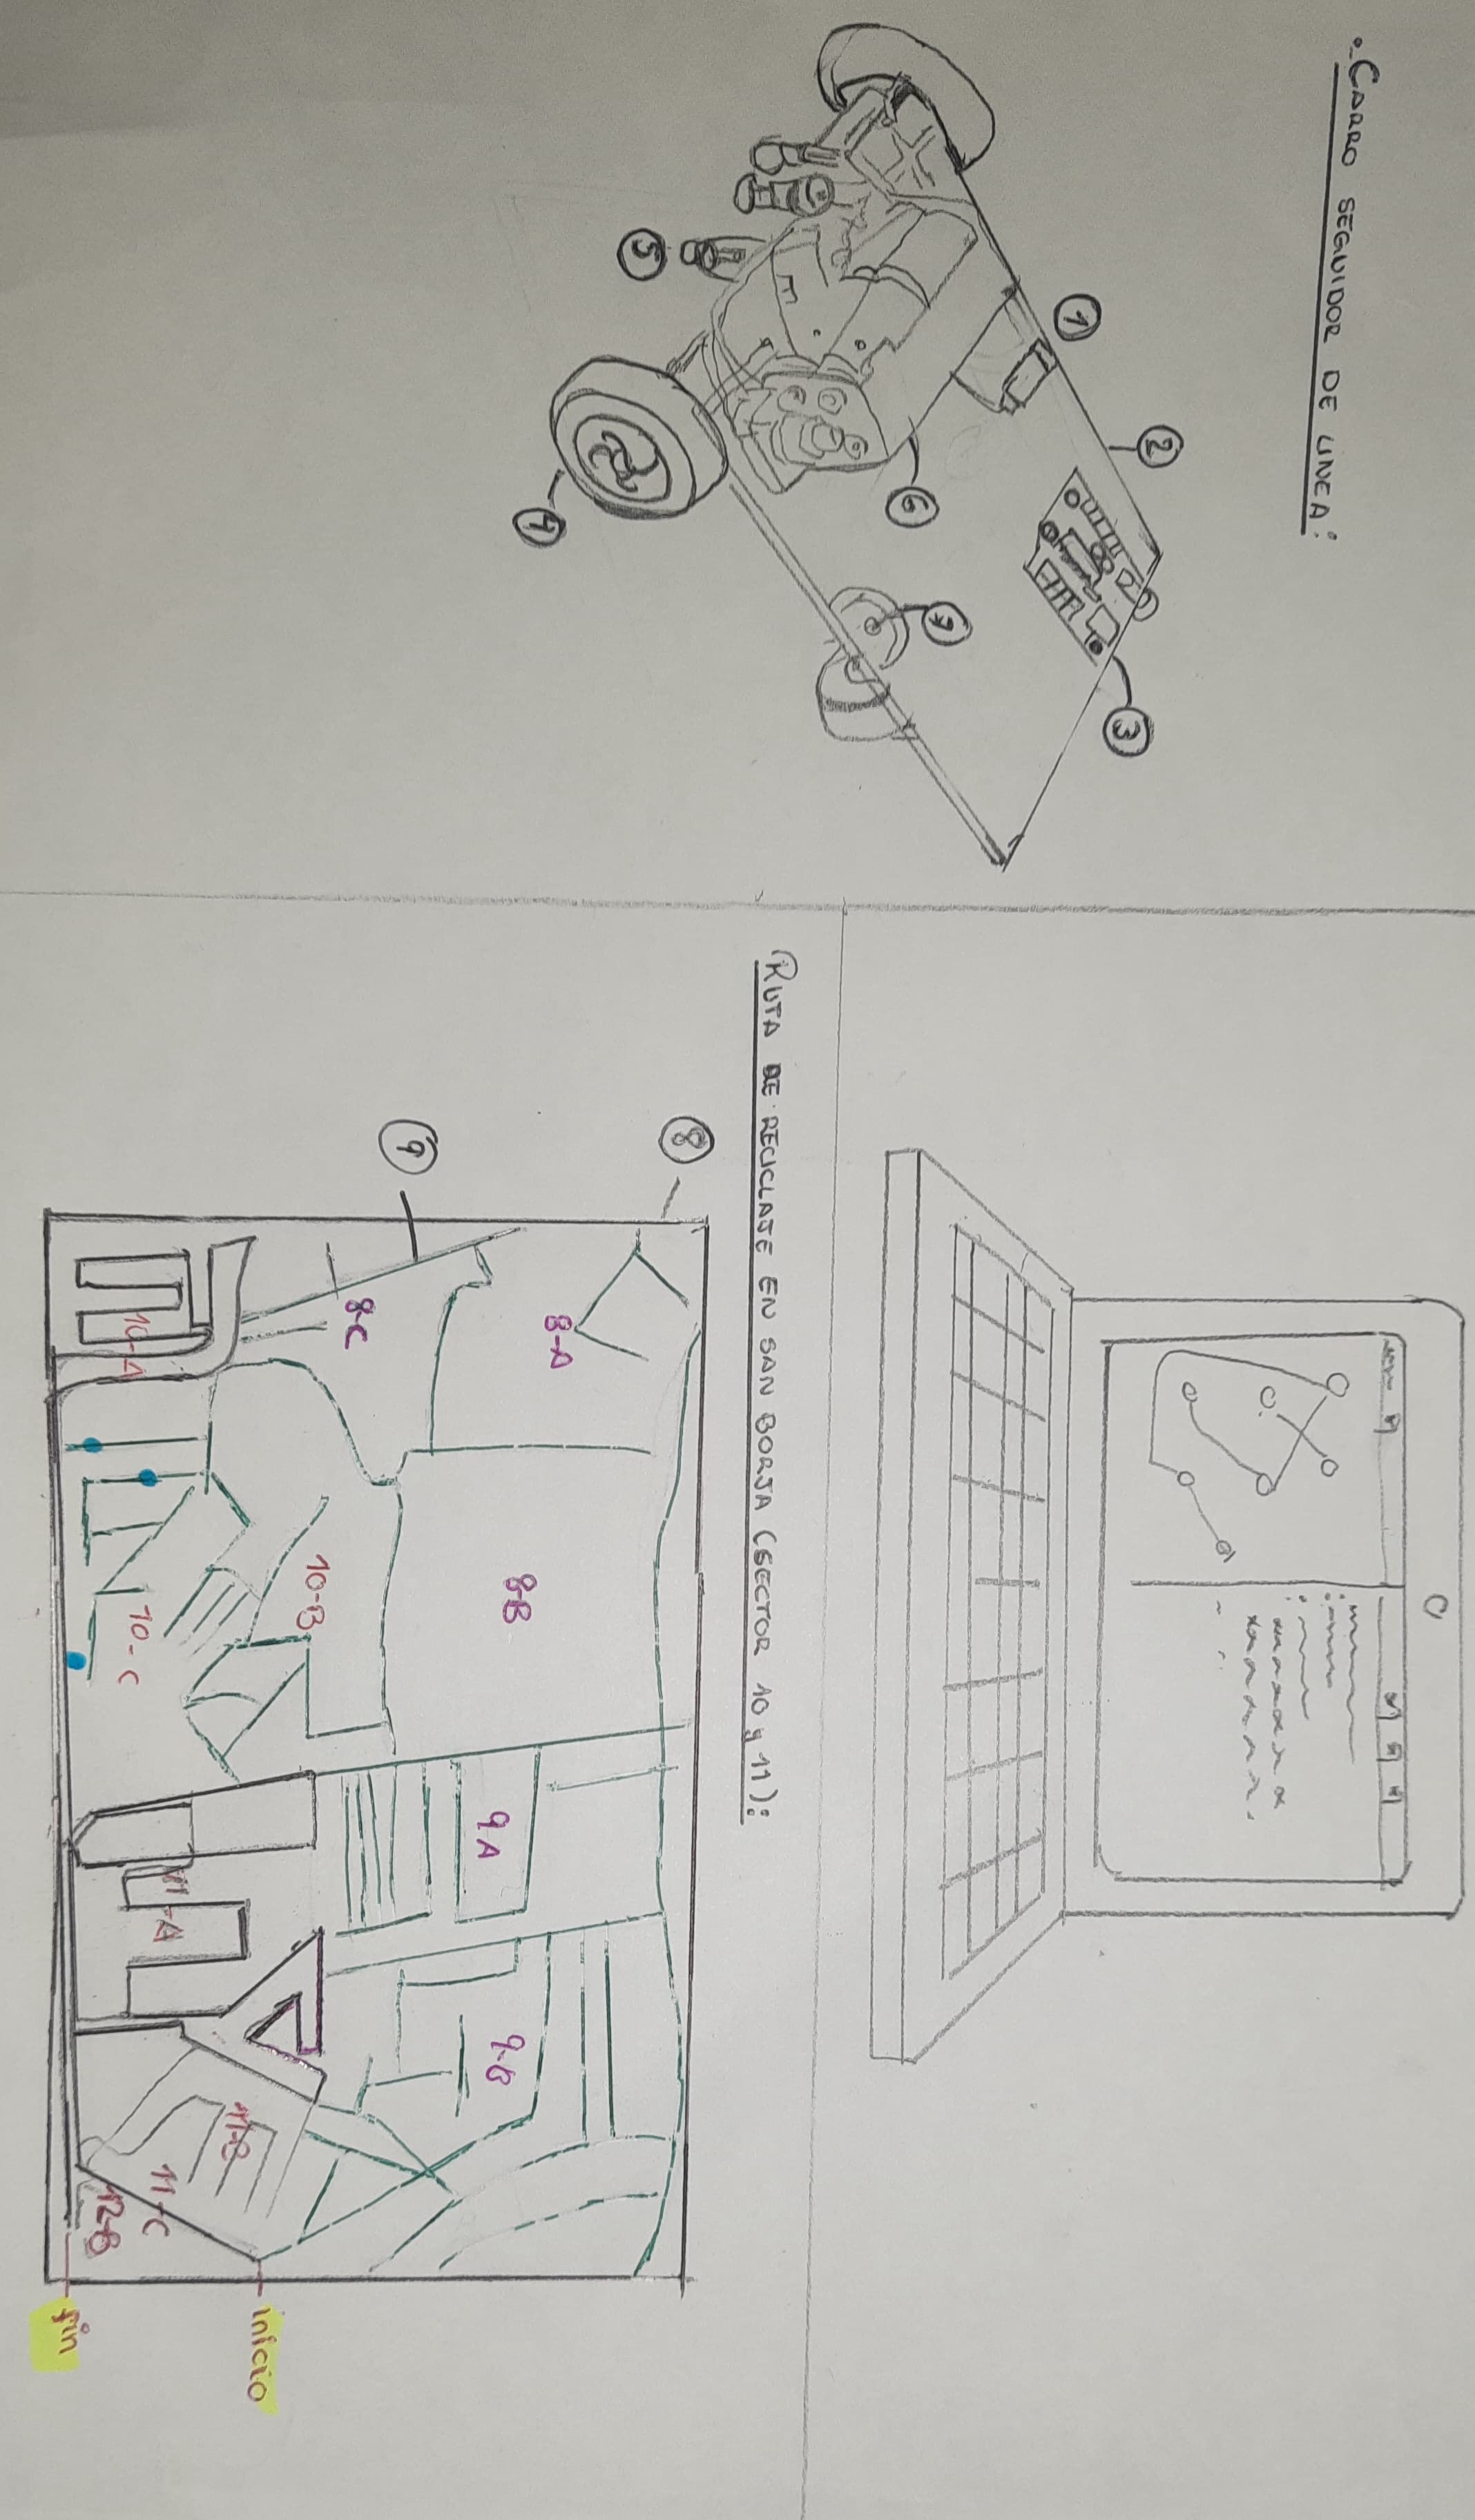 • CARRO SEGUIDOR DE LINEA:
1
2
3
4
5
6
7
RUTA DE RECICLAJE EN SAN BORJA (SECTOR 10 y 11):
8
9
8-A
8-B
8-C
9A
9-B
10-A
10-B
10-C
11-A
11-B
11-C
12-B
inicio
fin